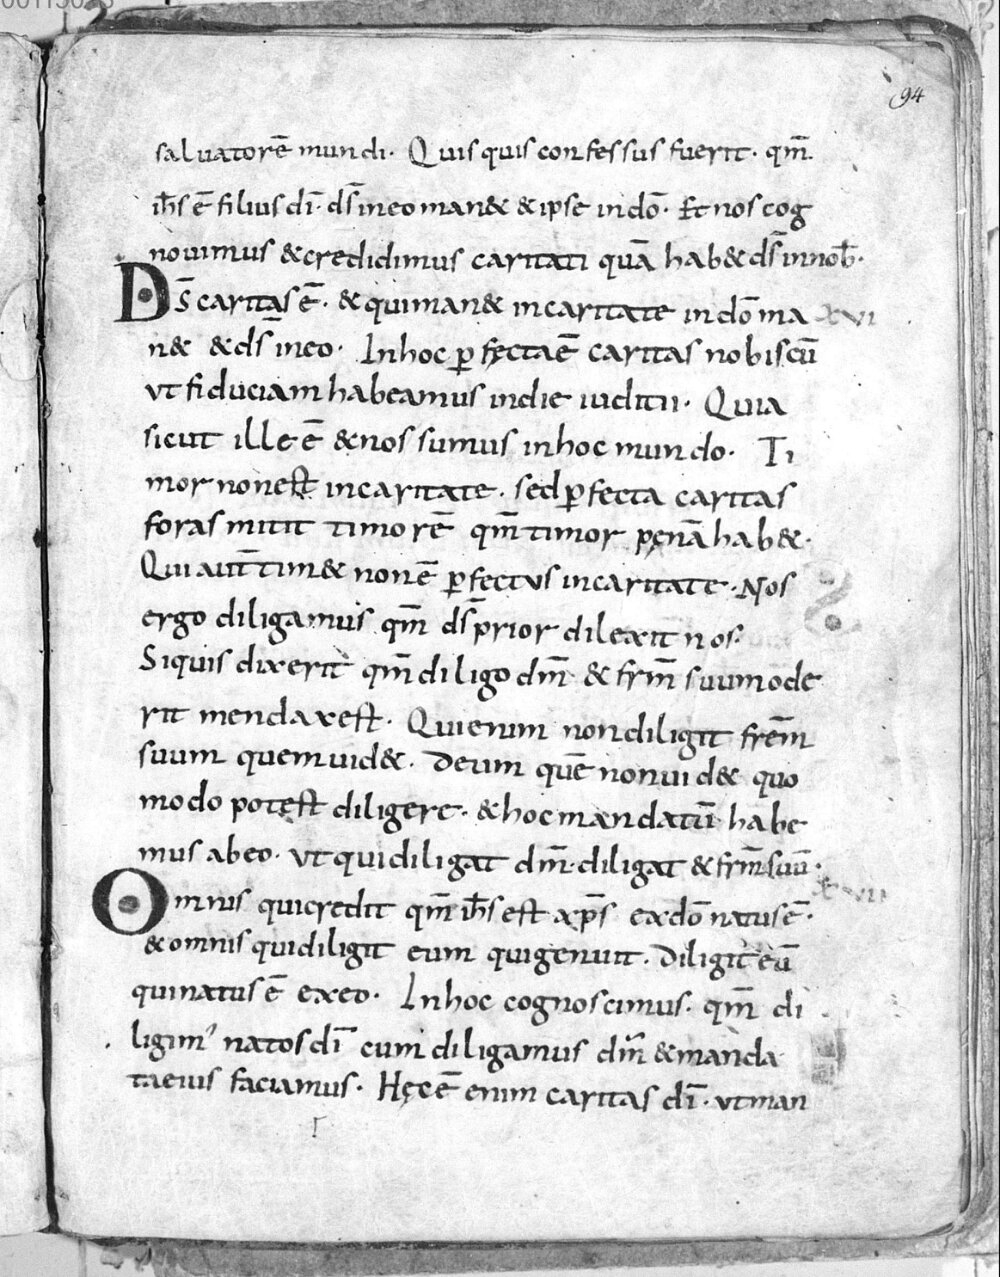 94
saluatorē mundi. Quisquis confessus fuerit. qm̄
ih̄s ē filius dī. ds̄ in eo man& & ipse in dō. Et nos cog
nouimus & credidimus caritati quā hab& ds̄ in nob̄.
Ds̄ caritas ē. & qui man& in caritate in dō ma
xvi
n& & ds̄ in eo. In hoc ꝑfecta ē caritas nobiscū
ut fiduciam habeamus in die iuditii. Quia
sicut ille ē & nos sumus in hoc mundo. Ti
mor non est in caritate. sed ꝑfecta caritas
foras mitit timorē qm̄ timor pęnā hab&.
Qui aut̄ tim& non ē ꝑfectus in caritate. Nos
ergo diligamus qm̄ ds̄ prior dilexit nos.
Siquis dixerit qm̄ diligo dm̄ & frm̄ suum ode
rit mendax est. Qui enim non diligit frēm
suum quem uid&. deum quē non uid& quo
modo potest diligere. & hoc mandatū habe
mus ab eo. ut qui diligat dm̄. diligat & frm̄ suū.
xvii
Omnis qui credit qm̄ ih̄s est xp̄s ex dō natus ē.
& omnis qui diligit eum qui genuit. diligit eū
qui natus ē ex eo. In hoc cognoscimus. qm̄ di
ligim' natos dī cum diligamus dm̄ & manda
ta eius faciamus. Hęc ē enim caritas dī. ut man